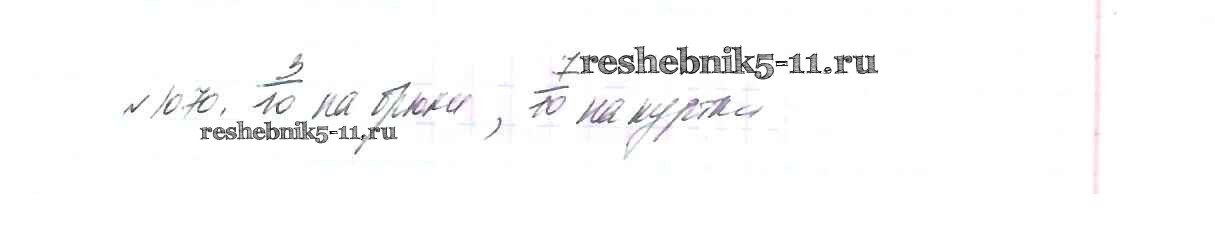 №1070. 3/10 на брюки, 7/10 на куртки
reshebnik5-11.ru
reshebnik5-11.ru